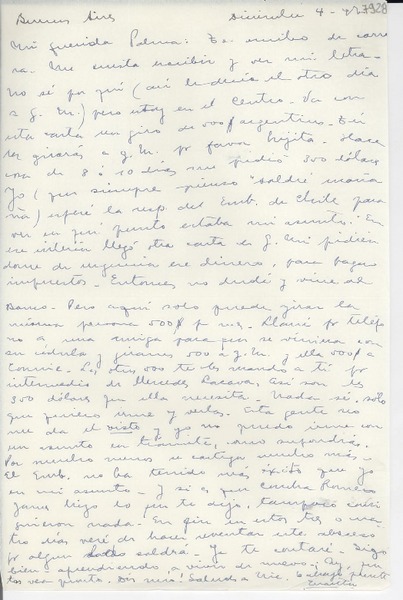 Buenos Aires Diciembre 4 - 47928
Mi querida Palma: Te escribo de carre
ra. Me cuesta escribir y ver mi letra.
No sé por qué (así le decía el otro día
a G. M.) pero estoy en el Centro. Va con
esta carta un giro de 500$ argentinos.
les girarás a G. M. por favor hijita. Hace
cosa de 8 ó 10 días me pidió 300 dólares
Yo (que siempre pienso "saldré maña
na") esperé la resp. del Emb. de Chile para
ver en qué punto estaba mi asunto. En
ese interín llegó otra carta de G. M. pidién
dome de urgencia ese dinero para pagar
impuestos. Entonces no dudé y vine al
Banco. Pero aquí solo puede girar la
misma persona 500$ p. mes. Llamé por teléfo
no a una amiga para que se viniera con
su cédula y giramos 500 a G. M. y ella 500$ a
Connie. Los otros 500 te los mando a ti por
intermedio de Mercedes Así son los
300 dólares que ella necesita. Nada sé, solo
que quiero irme y verlos. Esta gente no
me da el visto y yo no puedo irme con
un asunto en trámite, como supondrás.
Por mucho menos se castiga mucho más.
El Emb. no ha tenido más éxito que yo
en mi asunto. Y si es que Condra Romero
hizo lo que te dijo, tampoco
nada. En fin en estos tres o cua
tro días veré de hacer reventar este absceso
por algun lado saldrá. Ya te contaré. Sigo
bien, aprendiendo a vivir de nuevo.
tos vea pronto. Dios mío! Saludos a Eric.